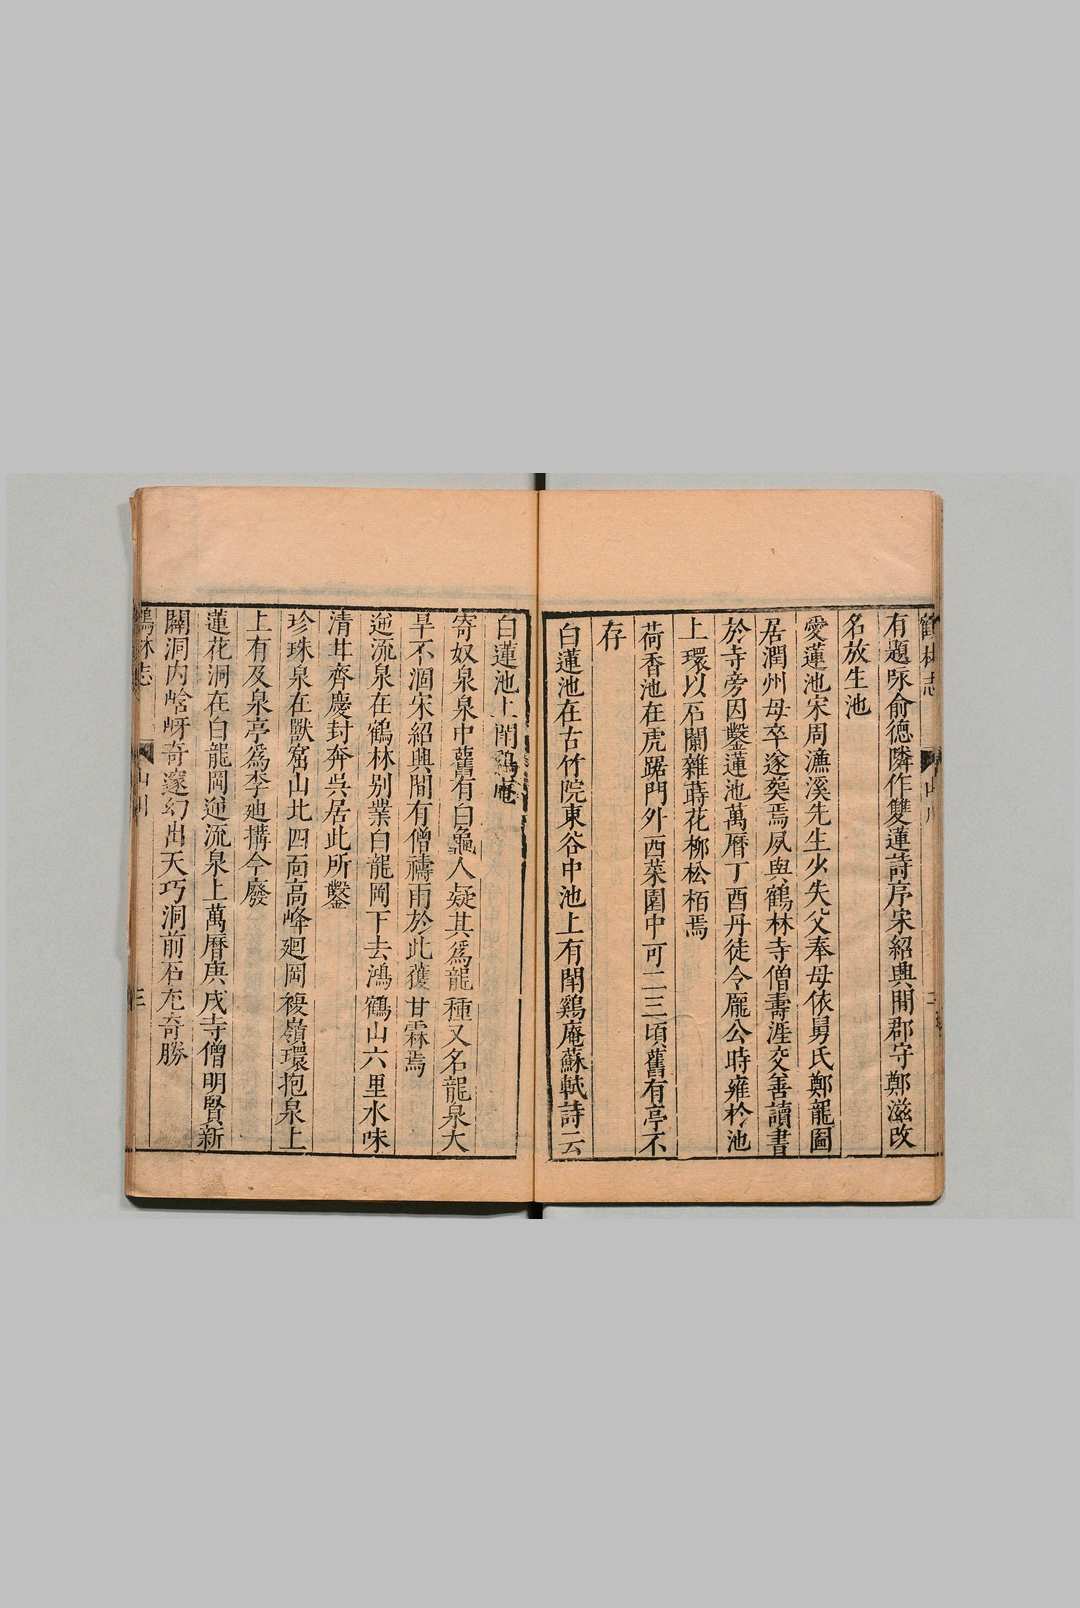 鶴林志
山川
有題咏俞德隣作雙蓮詩序宋紹興間郡守鄭滋改
名放生池
愛蓮池宋周濂溪先生少失父奉母依舅氏鄭龍圖
居潤州母卒遂葬焉夙與鶴林寺僧壽涯交善讀書
於寺旁因鑿蓮池萬曆丁酉丹徒令龐公時雍於池
上環以石闌雜蒔花柳松栢焉
荷香池在虎踞門外西菜園中可二三頃舊有亭不
存
白蓮池在古竹院東谷中池上有閑鷄庵蘇軾詩云
白蓮池上閑鷄庵
寄奴泉泉中舊有白龜人疑其爲龍種又名龍泉大
旱不涸宋紹興間有僧禱雨於此獲甘霖焉
迤流泉在鶴林别業白龍岡下去鴻鶴山六里水味
清甘齊慶封奔吳居此所鑿
珍珠泉在獸窟山北四面高峰廻岡複嶺環抱泉上
上有及泉亭爲李廸搆今廢
蓮花洞在白龍岡迤流泉上萬曆庚戌寺僧明賢新
闢洞内嵱岈奇邃幻出天巧洞前石尤奇勝
鶴林志
山川
三